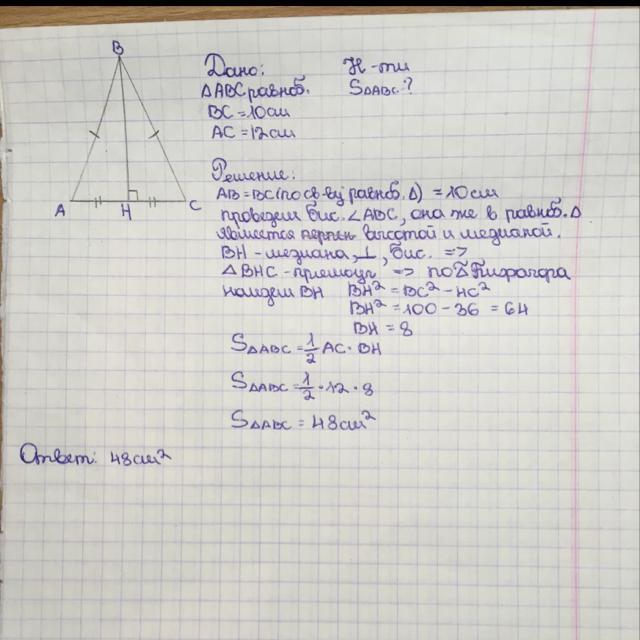 B
A
H
C
Дано:
△ABC равноб.
BC = 10 см
AC = 12 см
Н-ти
S△ABC - ?
Решение:
AB = BC (по св-ву равноб. △) = 10 см
проведем бис. ∠ABC, она же в равноб. △
является перпен высотой и медианой.
BH - медиана, ⊥, бис. =>
△BHC - прямоуг => по Пифагора
найдем BH BH² = BC² - HC²
BH² = 100 - 36 = 64
BH = 8
S△ABC = 1/2 AC · BH
S△ABC = 1/2 · 12 · 8
S△ABC = 48 см²
Ответ: 48 см²